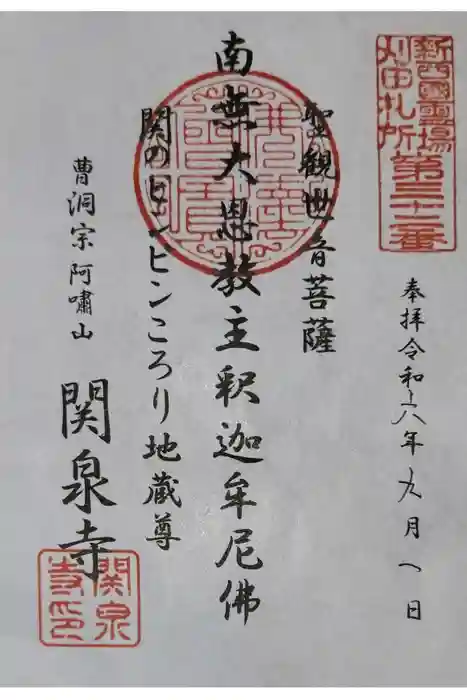 新西國霊場
刈田札所
第三十二番
奉拝令和六年九月八日
聖観世音菩薩
南無大恩教主釈迦牟尼佛
関のピンピンころり地蔵尊
曹洞宗阿嘯山
関泉寺
関泉
寺印